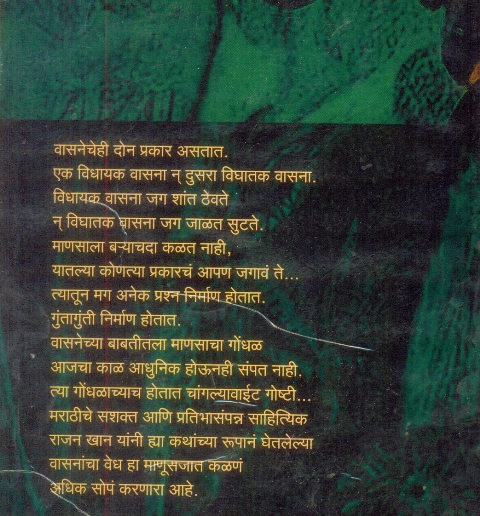 वासनेचेही दोन प्रकार असतात.
एक विधायक वासना न् दुसरा विघातक वासना.
विधायक वासना जग शांत ठेवते
न् विघातक वासना जग जाळत सुटते.
माणसाला बऱ्याचदा कळत नाही,
यातल्या कोणत्या प्रकारचं आपण जगावं ते...
त्यातून मग अनेक प्रश्न निर्माण होतात.
गुंतागुंती निर्माण होतात.
वासनेच्या बाबतीतला माणसाचा गोंधळ
आजचा काळ आधुनिक होऊनही संपत नाही.
त्या गोंधळाच्याच होतात चांगल्यावाईट गोष्टी...
मराठीचे सशक्त आणि प्रतिभासंपन्न साहित्यिक
राजन खान यांनी ह्या कथांच्या रूपानं घेतलेल्या
वासनांचा वेध हा माणूसजात कळणं
अधिक सोपं करणारा आहे.